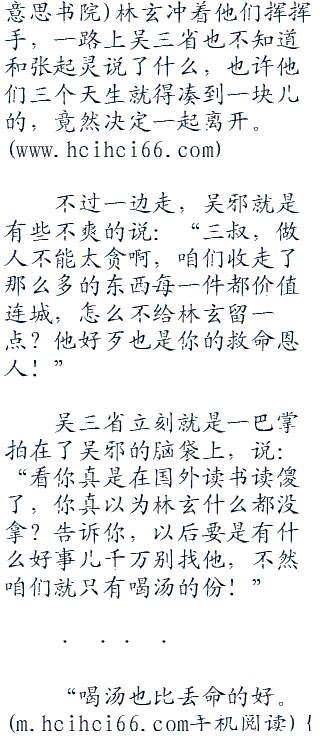 意思书院)林玄冲着他们挥挥
手，一路上吴三省也不知道
和张起灵说了什么，也许他
们三个天生就得凑到一块儿
的，竟然决定一起离开。
(www.hcihci66.com)
不过一边走，吴邪就是
有些不爽的说：“三叔，做
人不能太贪啊，咱们收走了
那么多的东西每一件都价值
连城，怎么不给林玄留一
点？他好歹也是你的救命恩
人！”
吴三省立刻就是一巴掌
拍在了吴邪的脑袋上，说：
“看你真是在国外读书读傻
了，你真以为林玄什么都没
拿？告诉你，以后要是有什
么好事儿千万别找他，不然
咱们就只有喝汤的份！”
. . . .
“喝汤也比丢命的好。
(m.hcihci66.com手机阅读){